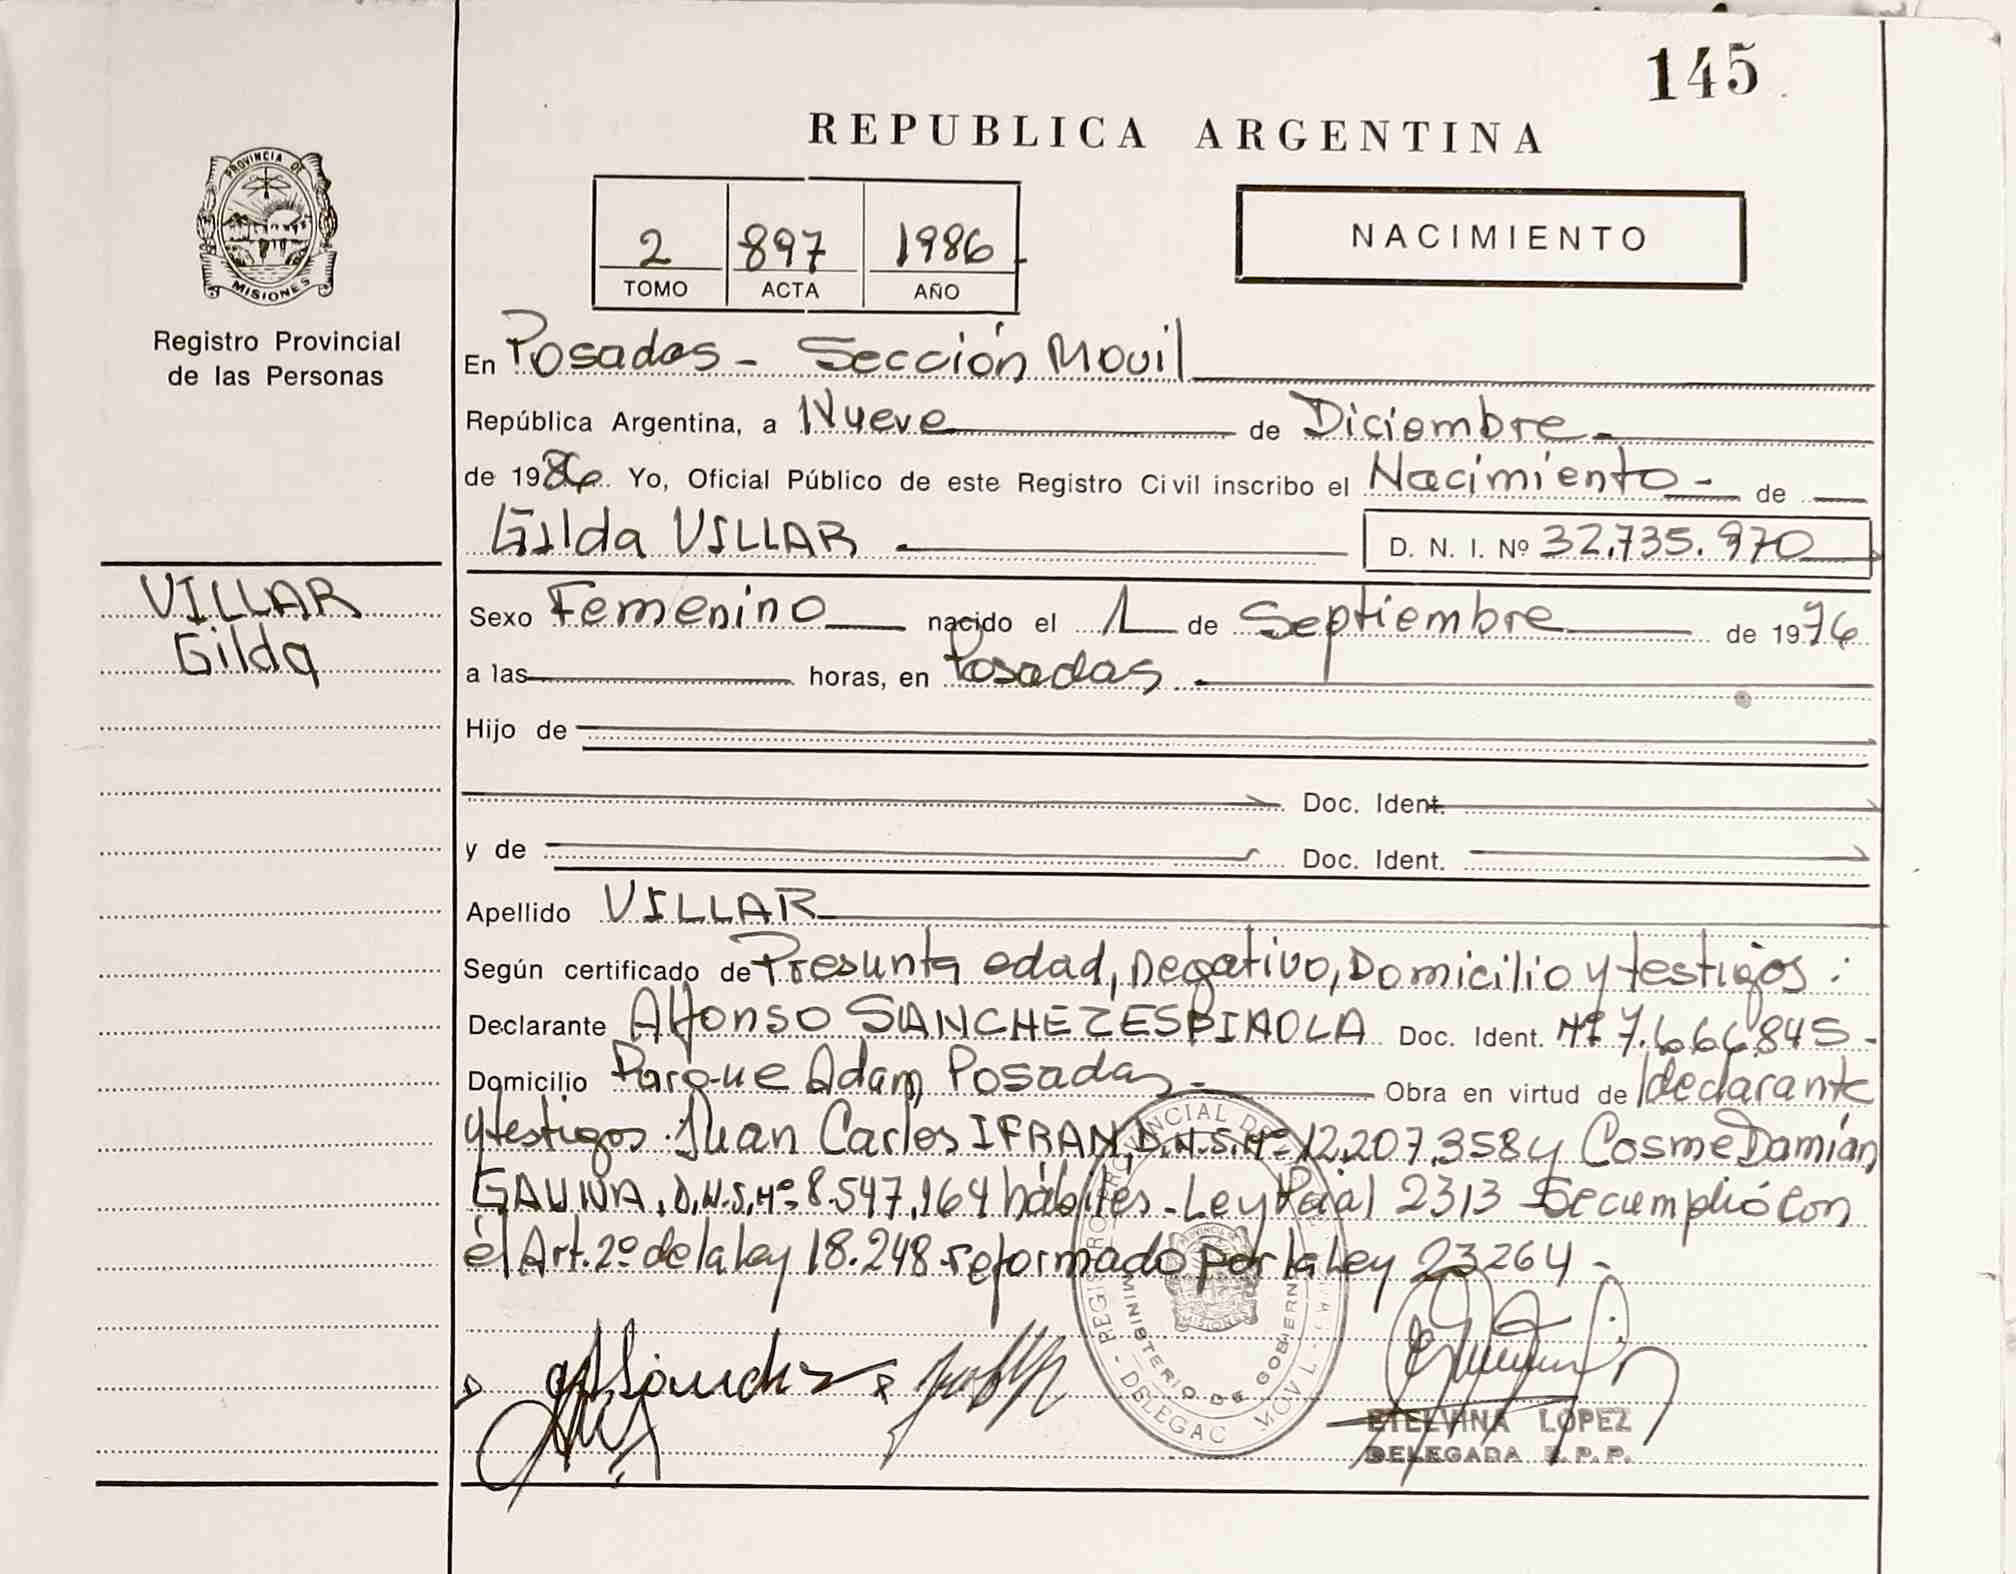 145
REPUBLICA ARGENTINA
PROVINCIA DE
MISIONES
Registro Provincial
de las Personas
2 897 1986
TOMO ACTA AÑO
NACIMIENTO
En Posadas - Sección Movil
República Argentina, a Nueve de Diciembre
de 1986 Yo, Oficial Público de este Registro Civil inscribo el Nacimiento - de
Gilda VILLAR D. N. I. Nº 32.735.970
VILLAR
Gilda
Sexo Femenino nacido el 1 de Septiembre de 1976
a las horas, en Posadas
Hijo de
Doc. Ident.
y de Doc. Ident.
Apellido VILLAR
Según certificado de Presunta edad, Negativo, Domicilio y testigos :
Declarante Alfonso SANCHEZ ESPINOLA Doc. Ident. Nº 7.666.845 -
Domicilio Parque Adam Posadas - Obra en virtud de declarante
y testigos. Juan Carlos IFRAN, D.N.I. Nº 12.207.358 y Cosme Damián
GAUNA, D.N.I. Nº 8.547.164 hábiles - Ley Pcial 2313 Se cumplió con
el Art. 2º de la Ley 18.248 reformado por la Ley 23264 -
MINISTERIO DE GOBIERNO
ETELVINA LOPEZ
DELEGADA R.P.P.